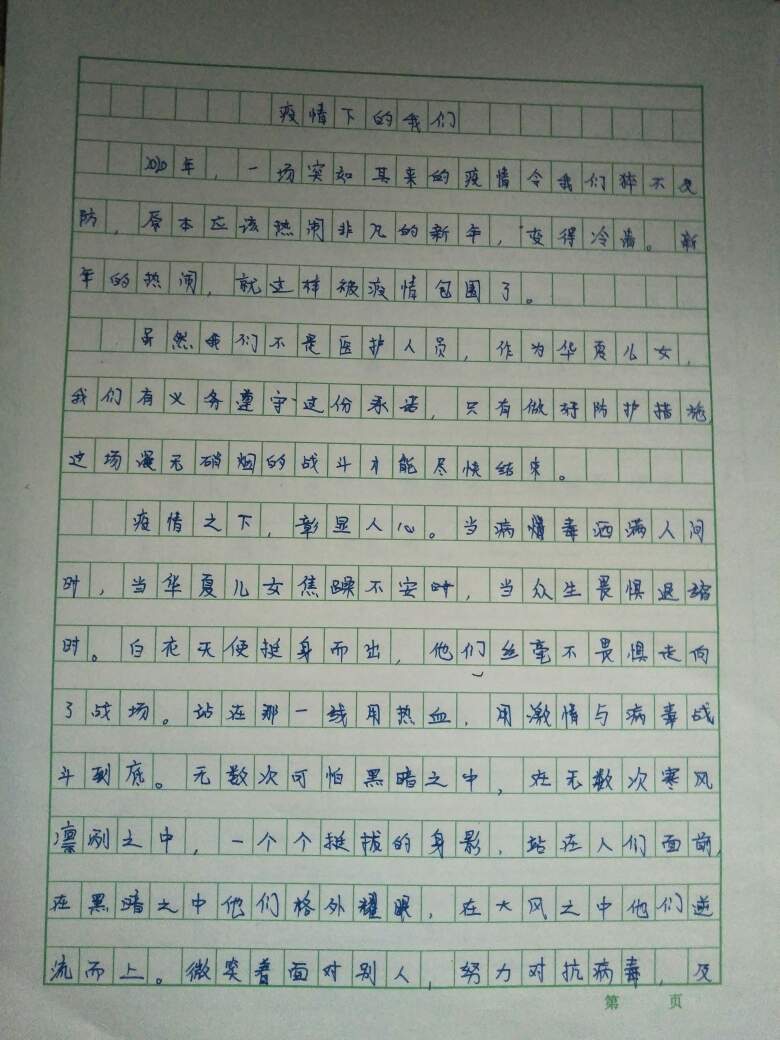 疫情下的我们
2020年，一场突如其来的疫情令我们猝不及
防，原本应该热闹非凡的新年，变得冷清。新
年的热闹，就这样被疫情包围了。
虽然我们不是医护人员，作为华夏儿女，
我们有义务遵守这份承诺，只有做好防护措施，
这场漫无硝烟的战斗才能尽快结束。
疫情之下，彰显人心。当病毒洒满人间
时，当华夏儿女焦躁不安时，当众生畏惧退缩
时。白衣天使挺身而出，他们丝毫不畏惧走向
了战场。站在那一线用热血，用激情与病毒战
斗到底。无数次可怕黑暗之中，在无数次寒风
凛冽之中，一个个挺拔的身影，站在人们面前，
在黑暗之中他们格外耀眼，在大风之中他们逆
流而上。微笑着面对别人，努力对抗病毒，及
第 页